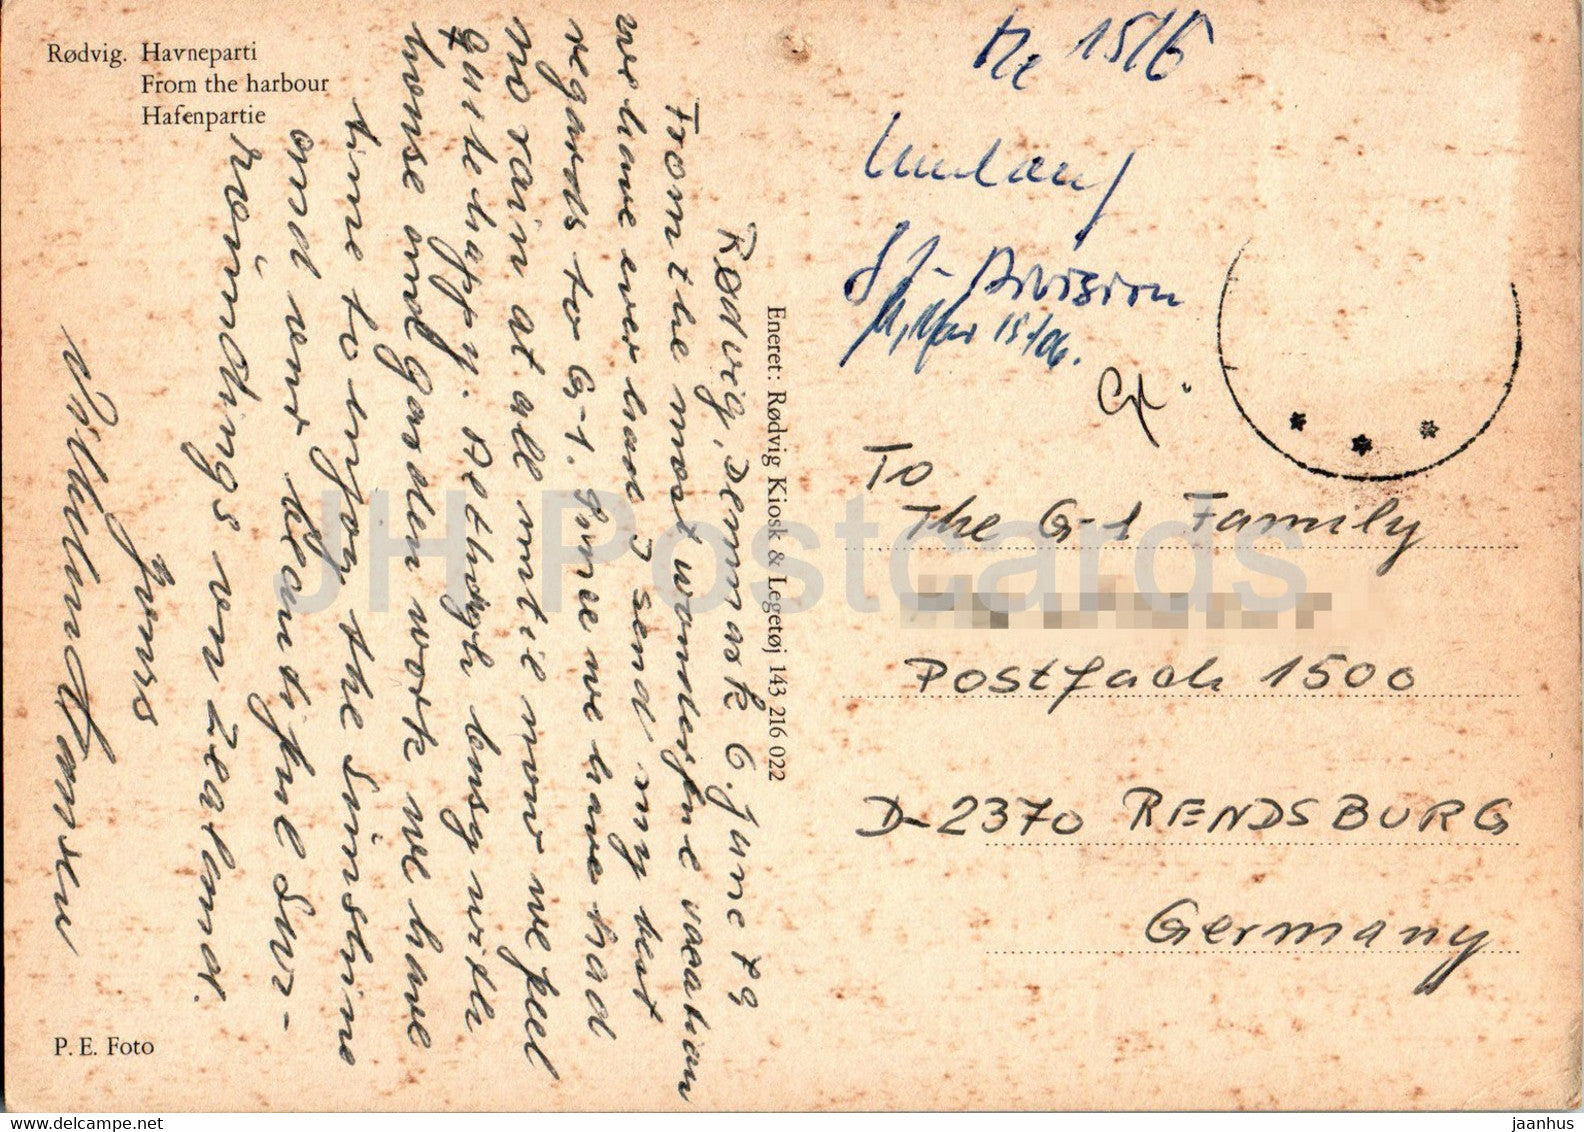 Rødvig. Havneparti
From the harbour
Hafenpartie
Rødvig, Denmark 6. June 79
From the most wonderful vacation
we have ever had I send my best
regards to G-1. Since we have had
no rain at all until now we feel
quite happy. Although busy with
house and garden work we have
time to enjoy the sunshine
and our beautiful sur-
roundings on Zealand.
Yours
P. E. Foto
Eneret: Rødvig Kiosk & Legetøj 143 216 022
15/6
Umlauf
Division
15/06.
To
The G-1 Family
Postfach 1500
D-2370 RENDSBURG
Germany
JH Postcards
www.delcampe.net
jaanhus